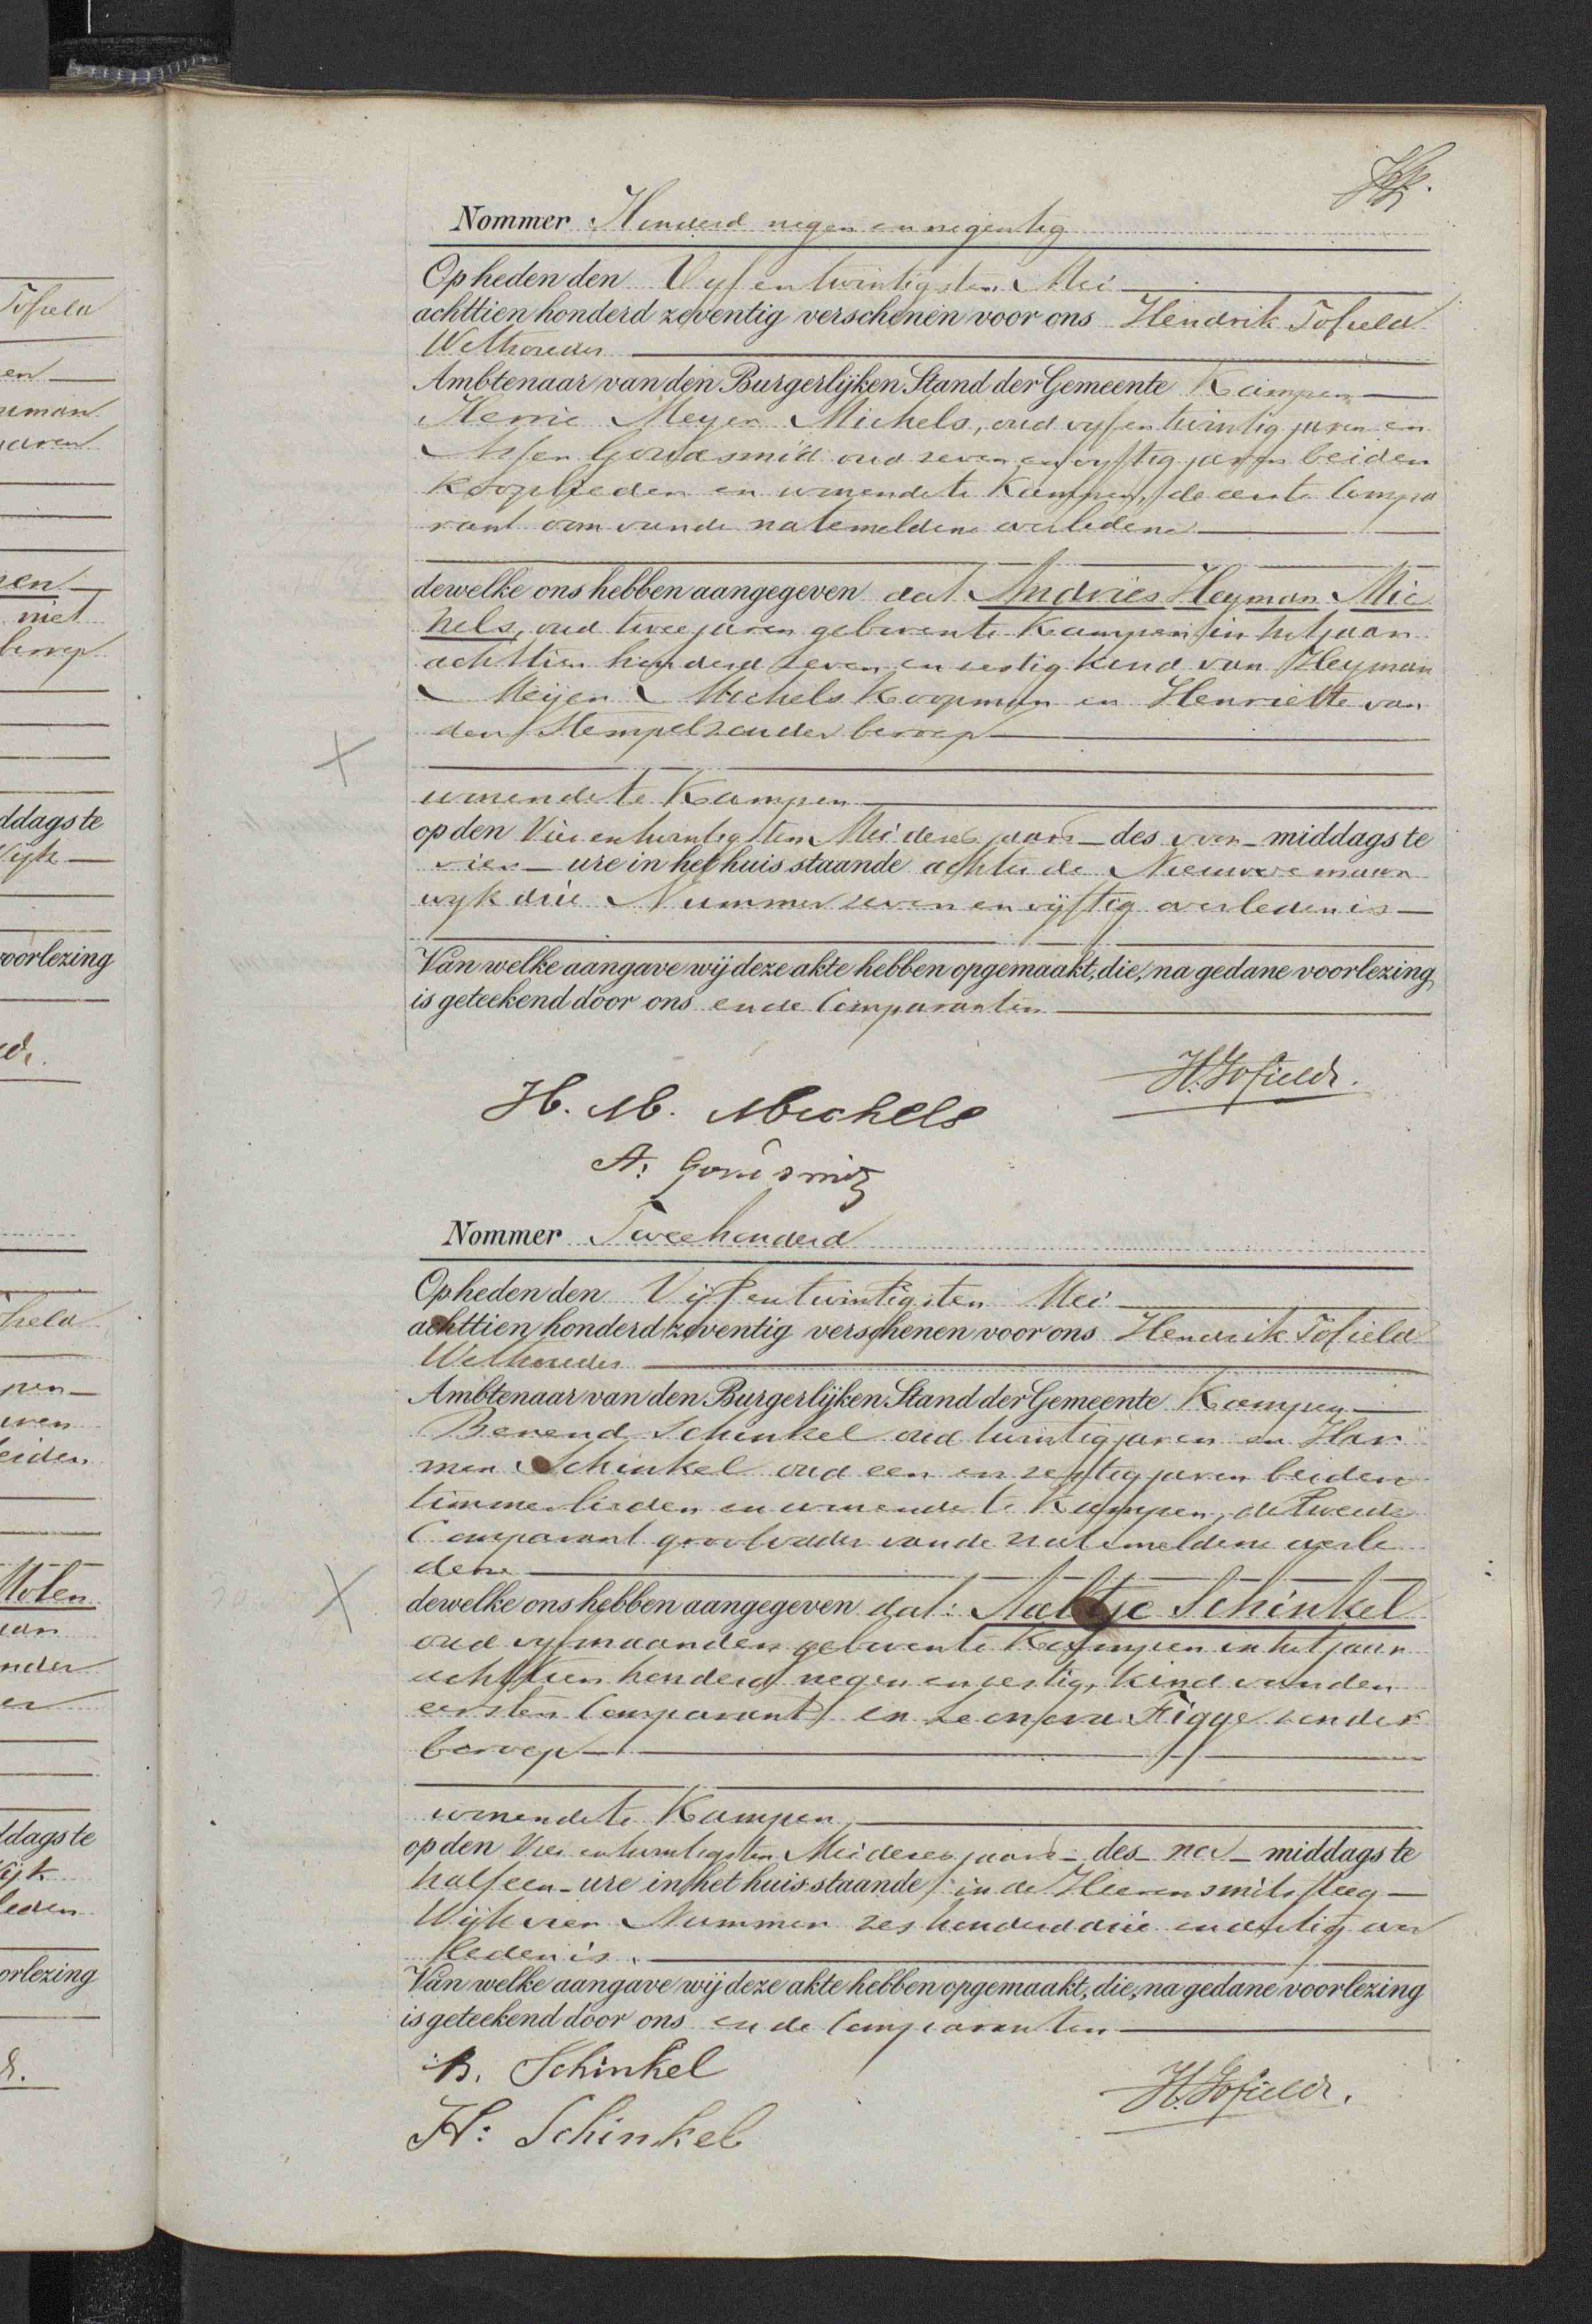 Nommer Honderd negen en negentig
Op heden den Vyf en twintigsten Mei
achttien honderd zeventig verschenen voor ons Hendrik Tofield
Wethouder
Ambtenaar van den Burgerlijken Stand der Gemeente Kampen
Meyer Michels, oud vyf en twintig jaren en
Goudsmid oud zeven en vyftig jaren beiden
Kooplieden en wonende te Kampen, de eerste Compa
rant oom van de natemelden overledene
dewelke ons hebben aangegeven dat Andries Heyman Mic
hels, oud twee jaren geboren te Kampen in het jaar
achttien honderd zeven en zestig kind van Heyman
Meijer Michels Koopman en Henriette van
den Stempel zonder beroep
wonende te Kampen
op den Vier en twintigsten Mei dezes jaars des voor middags te
vier ure in het huis staande achter de Nieuwe muur
wyk drie Nummer zeven en vijftig overleden is
Van welke aangave wij deze akte hebben opgemaakt, die, na gedane voorlezing
is geteekend door ons en de Comparanten
H. Tofield.
H. M. Michels
A. Goudsmid
Nommer Tweehonderd
Op heden den Vijf en twintigsten Mei
achttien honderd zeventig verschenen voor ons Hendrik Tofield
Wethouder
Ambtenaar van den Burgerlijken Stand der Gemeente Kampen
Berend Schinkel oud twintig jaren en Har
men Schinkel oud een en zestig jaren beiden
timmerlieden en wonende te Kampen, de tweede
Comparant grootvader van de natemeldene overle
dene
dewelke ons hebben aangegeven dat: Aaltje Schinkel
oud vyf maanden geboren te Kampen in het jaar
achttien honderd negen en zestig, kind van den
eersten Comparant en Leonora Figge zonder
beroep
wonende te Kampen
op den Vier en twintigsten Mei dezes jaars des na middags te
half een ure in het huis staande in de Heerensmitsteeg
Wijk vier Nummer zes honderd drie en dertig over
leden is.
Van welke aangave wij deze akte hebben opgemaakt, die, na gedane voorlezing
is geteekend door ons en de Comparanten
B. Schinkel
H. Tofield.
H: Schinkel